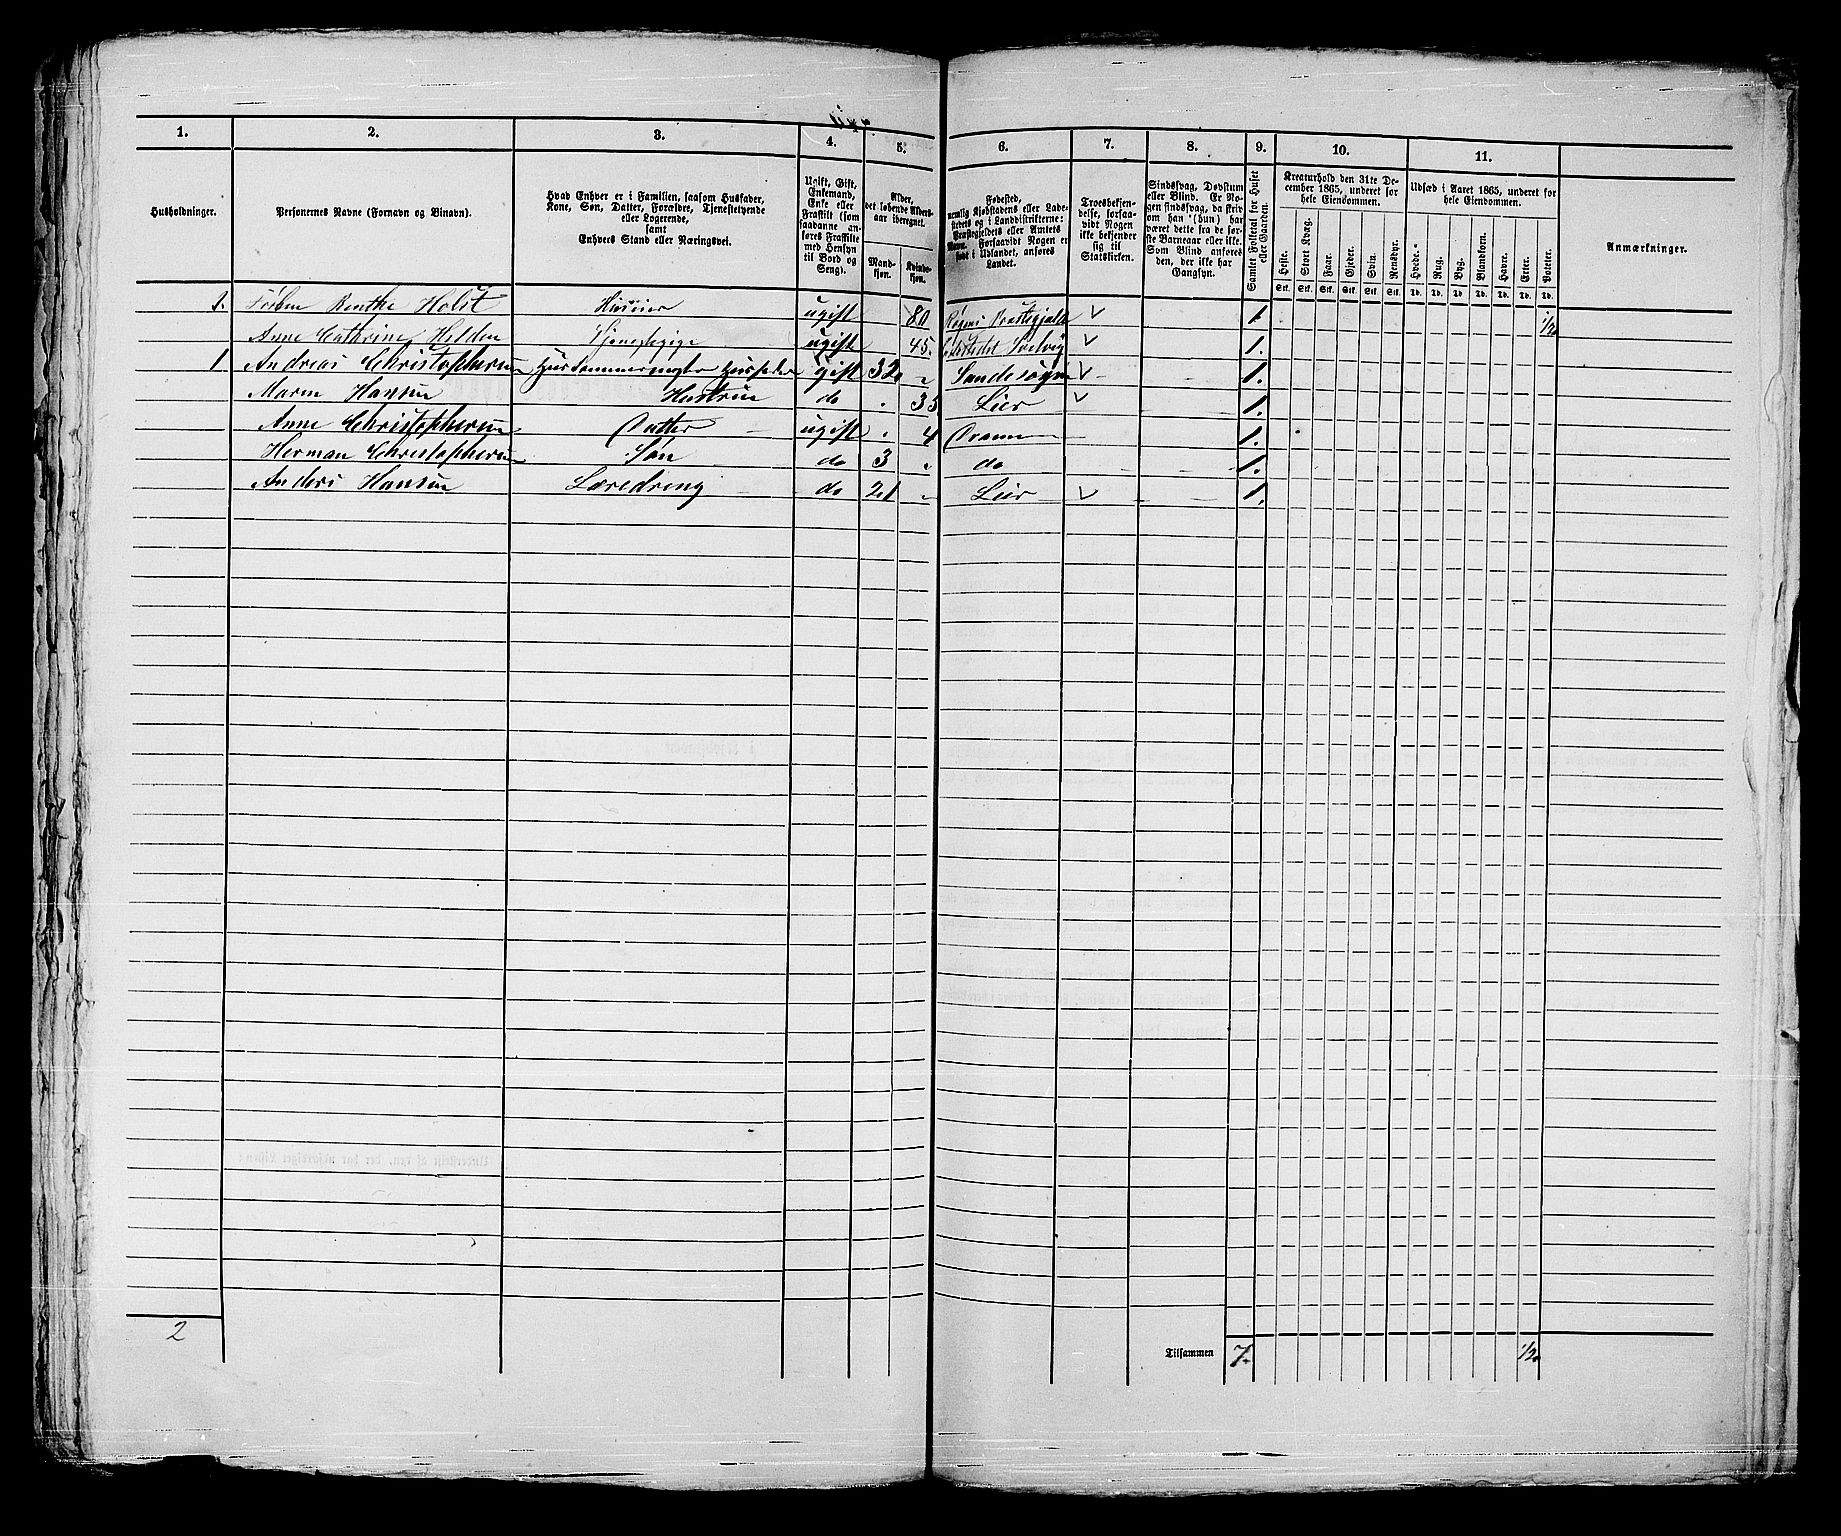 1. 2. 3. 4. 5. 6. 7. 8. 9. 10. 11.
Husholdninger.
Personernes Navne (Fornavn og Binavn).
Hvad Enhver er i Familien, saasom Husfader,
Kone, Søn, Datter, Forældre, Tjenestetyende
eller Logerende,
samt
Enhvers Stand eller Næringsvei.
Ugift, Gift,
Enkemand,
Enke eller
Fraskilt (som
saadanne an-
føres Fraskilte
med Hensyn
til Bord og
Seng).
Alder,
det løbende Alders-
aar iberegnet.
Mand-
kjøn.
Kvinde-
kjøn.
Fødested,
nemlig Kjøbstadens eller Lade-
stedets og i Landdistrikterne:
Præstegjeldets eller Amtets
Navn. Forsaavidt Nogen er
født i Udlandet, anføres
Landet.
Troesbekjen-
delse, forsaa-
vidt Nogen
ikke bekjender
sig til
Statskirken.
Sindssvag, Døvstum
eller Blind. Er No-
gen sindssvag, da skriv
om han (hun) har
været dette fra de før-
ste Barneaar eller ikke.
Som Blind anføres
den, der ikke har
Gangsyn.
Samlet Folketal for Huset
eller Gaarden.
Kreaturhold den 31te De-
cember 1865, underet for
hele Eiendommen.
Heste. Stort Kvæg. Faar. Gjeder. Svin. Rensdyr.
Stk. Stk. Stk. Stk. Stk. Stk.
Udsæd i Aaret 1865, underet for
hele Eiendommen.
Hvede. Rug. Byg. Blandkorn. Havre. Erter. Poteter.
Td. Td. Td. Td. Td. Td. Td.
Anmærkninger.
1. Holst ugift 80 Præstegjæld 1. 1/2
Anne Cathrine Helden Tjenestepige ugift 45. Ladestedet Svelvig 1.
1. Andreas Christophersen Husfader gift 32 Sande sogn 1.
Maren Hansen Hustrue do 35 Lier 1.
Anne Christophersen Datter ugift 4 Dramm 1.
Herman Christophersen Søn do 3 do 1.
Anders Hansen Læredreng do 21 Lier 1.
2
Tilsammen 7. 1/2